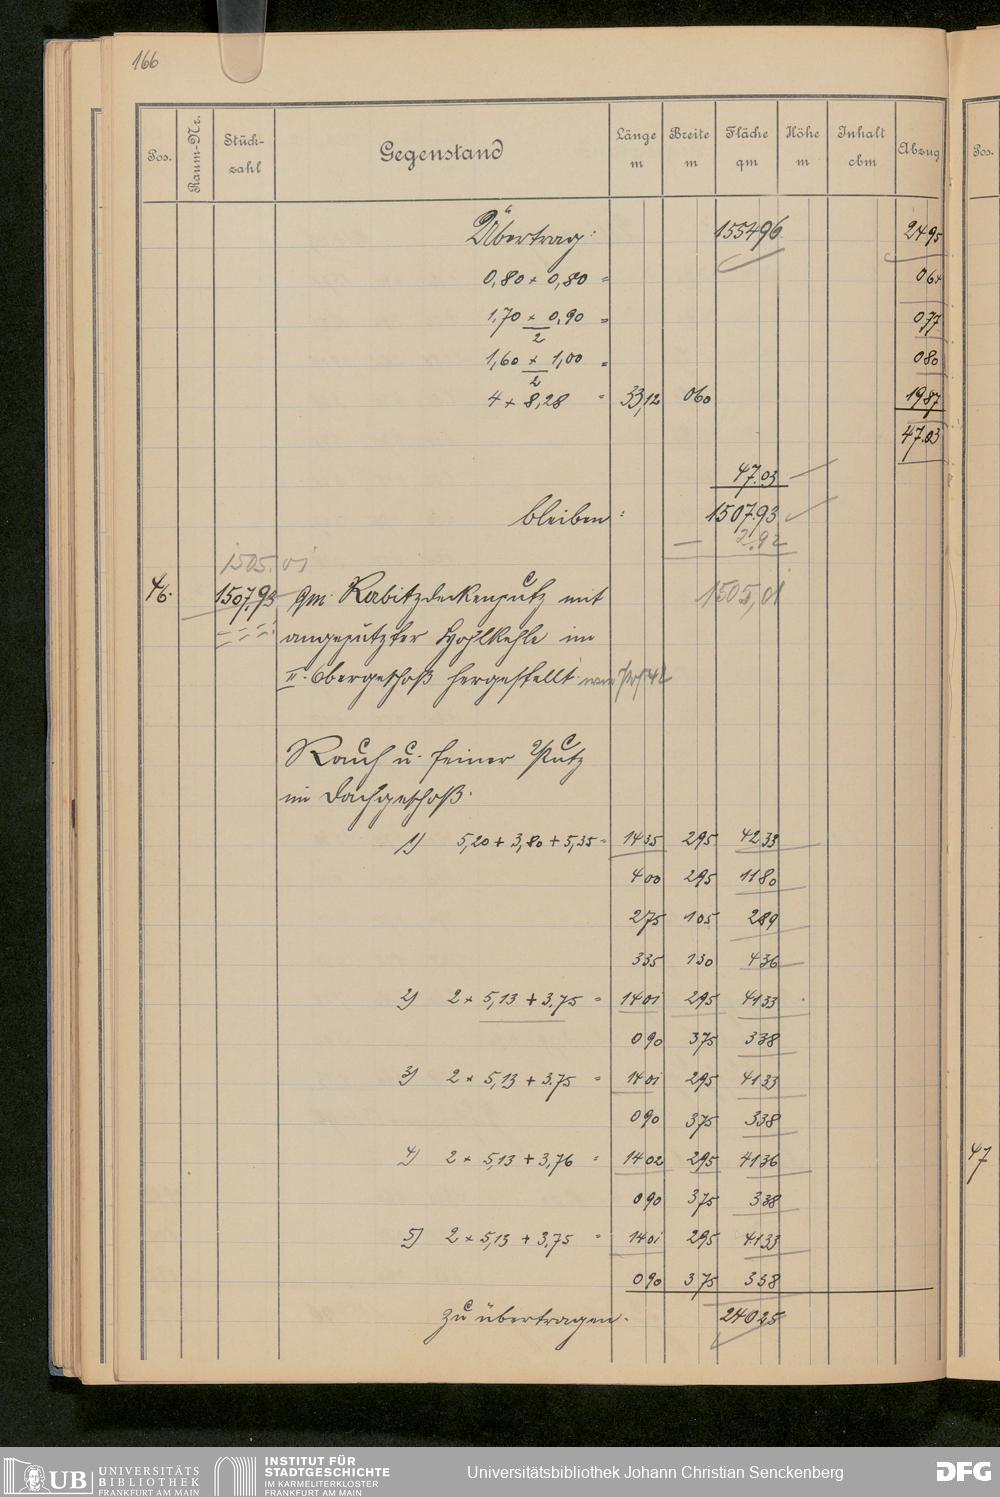 166
Pos. Raum-Nr. Stück-zahl Gegenstand Länge m Breite m Fläche qm Höhe m Inhalt cbm Abzug Pos.
Übertrag: 155496 2495
0,80 × 0,80 = 064
1,70 × 0,90 = 077
2
1,60 × 1,00 = 080
2
4 × 8,28 = 33,12 060 1987
47.03
47.03
bleiben: 1507.93
— 2,92
1505.01
46. 1507,93 qm Rabitzdeckenputz mit 1505,01
angeputzter Hohlkehle im
II. Obergeschoß hergestellt wie Pos 42
Rauh u. feiner Putz
im Dachgeschoß.
1) 5,20 + 3,80 + 5,35 = 1435 295 4233
400 295 1180
275 105 289
335 130 436
2) 2 × 5,13 + 3,75 = 1401 295 4133
090 375 338
3) 2 × 5,13 + 3.75 = 1401 295 4133
090 375 338
4) 2 × 5,13 + 3,76 = 1402 295 4136
47
090 375 338
5) 2 × 5,13 + 3,75 = 1401 295 4133
090 375 338
zu übertragen. 24025
UB UNIVERSITÄTS BIBLIOTHEK FRANKFURT AM MAIN
INSTITUT FÜR STADTGESCHICHTE IM KARMELITERKLOSTER FRANKFURT AM MAIN
Universitätsbibliothek Johann Christian Senckenberg
DFG